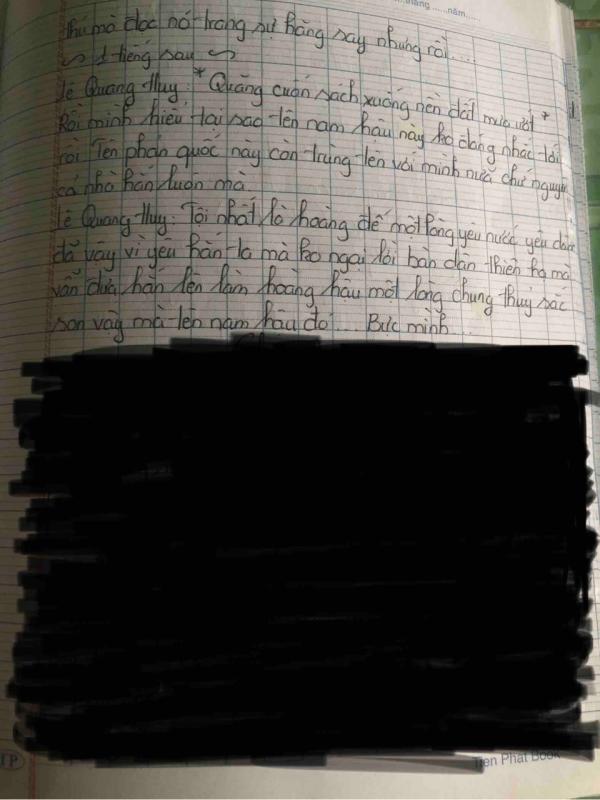 tháng......năm......
thú mà đọc nó trong sự hăng say nhưng rồi....
~ 1 tiếng sau ~
Lê Quang Huy: *Quăng cuốn sách xuống nền đất mưa ướt*
Rồi mình hiểu tại sao tên nam hậu này ko đáng nhắc tới
rồi Tên phản quốc này còn trùng tên với mình nữa chứ nguyên
cả nhà hắn luôn mà
Lê Quang Huy: Tội nhất là hoàng đế một lòng yêu nước yêu dân
đã vậy vì yêu hắn ta mà ko ngại lời bàn dân thiên hạ mà
vẫn đưa hắn lên làm hoàng hậu một lòng chung thuỷ sắc
son vậy mà tên nam hậu đó.... Bực mình...
Tien Phat Book